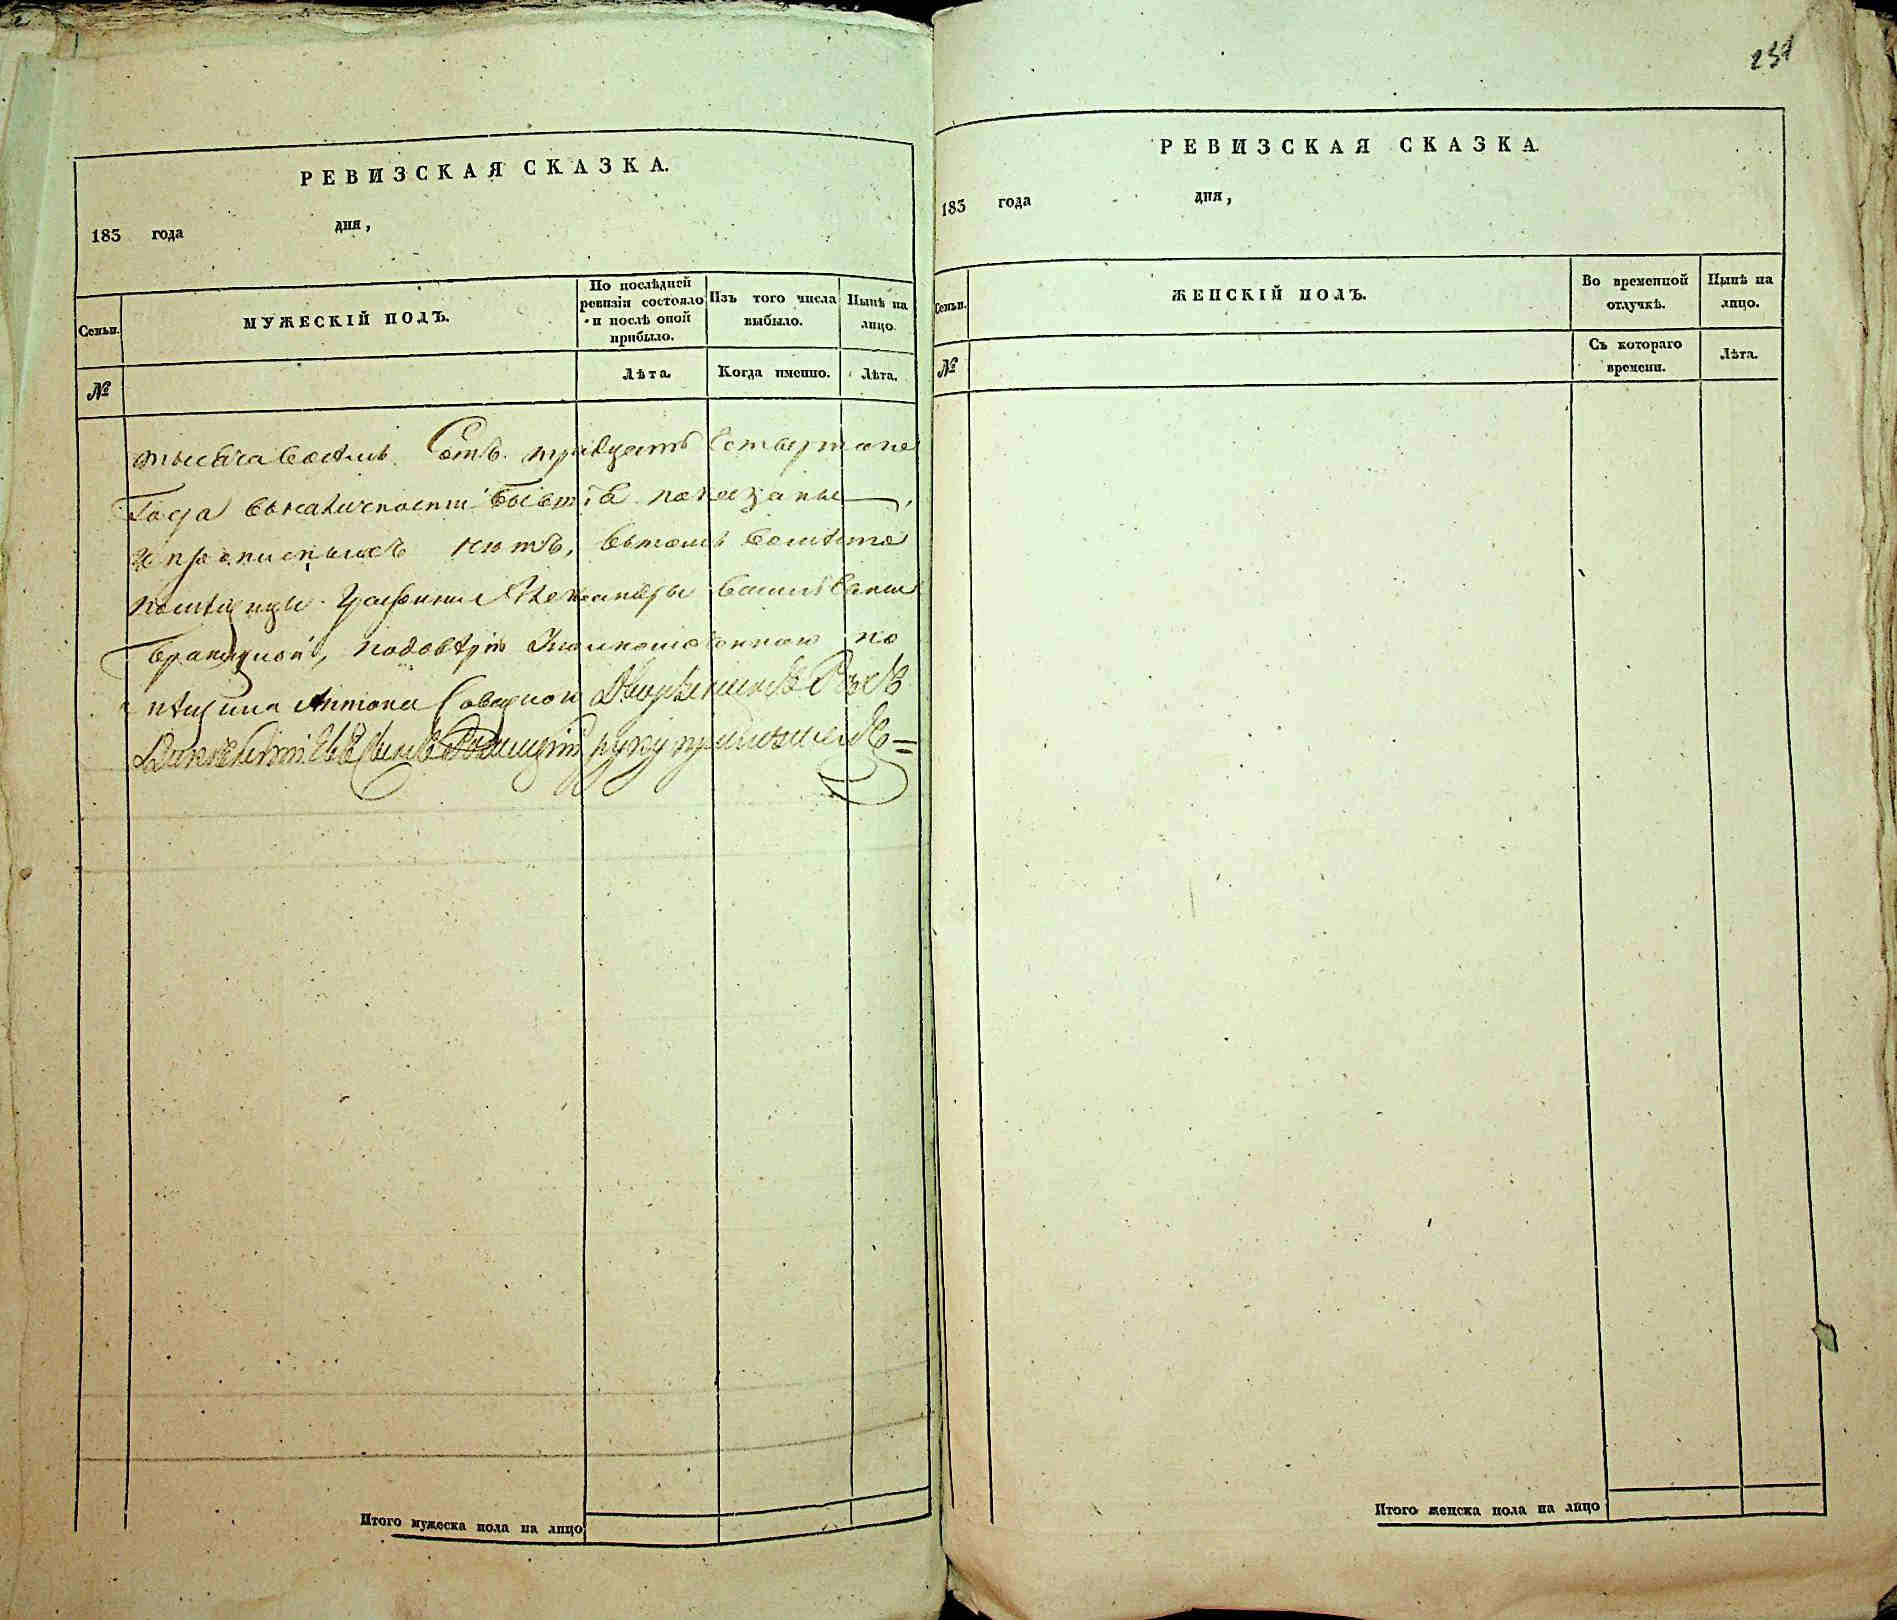 237
РЕВИЗСКАЯ СКАЗКА.
183 года дня,
Семьи.
МУЖЕСКІЙ ПОЛЪ.
По послѣдней
ревизіи состояло
и послѣ оной
прибыло.
Изъ того числа
выбыло.
Нынѣ на
лицо.
№
Лѣта.
Когда именно.
Лѣта.
тысяча восемь Сотъ тридцать Четвертаго
Года вналичности показаны,
и прописныхъ нѣтъ, втомъ вомѣсто
помѣщицы Графини Александры Васильевны
Браницкой, подовѣрію
Антона Дворянинъ
руку приложилъ
Итого мужеска пола на лицо
РЕВИЗСКАЯ СКАЗКА
183 года дня,
Семьи.
ЖЕНСКІЙ ПОЛЪ.
Во временной
отлучкѣ.
Нынѣ на
лицо.
№
Съ котораго
времени.
Лѣта.
Итого женска пола на лицо